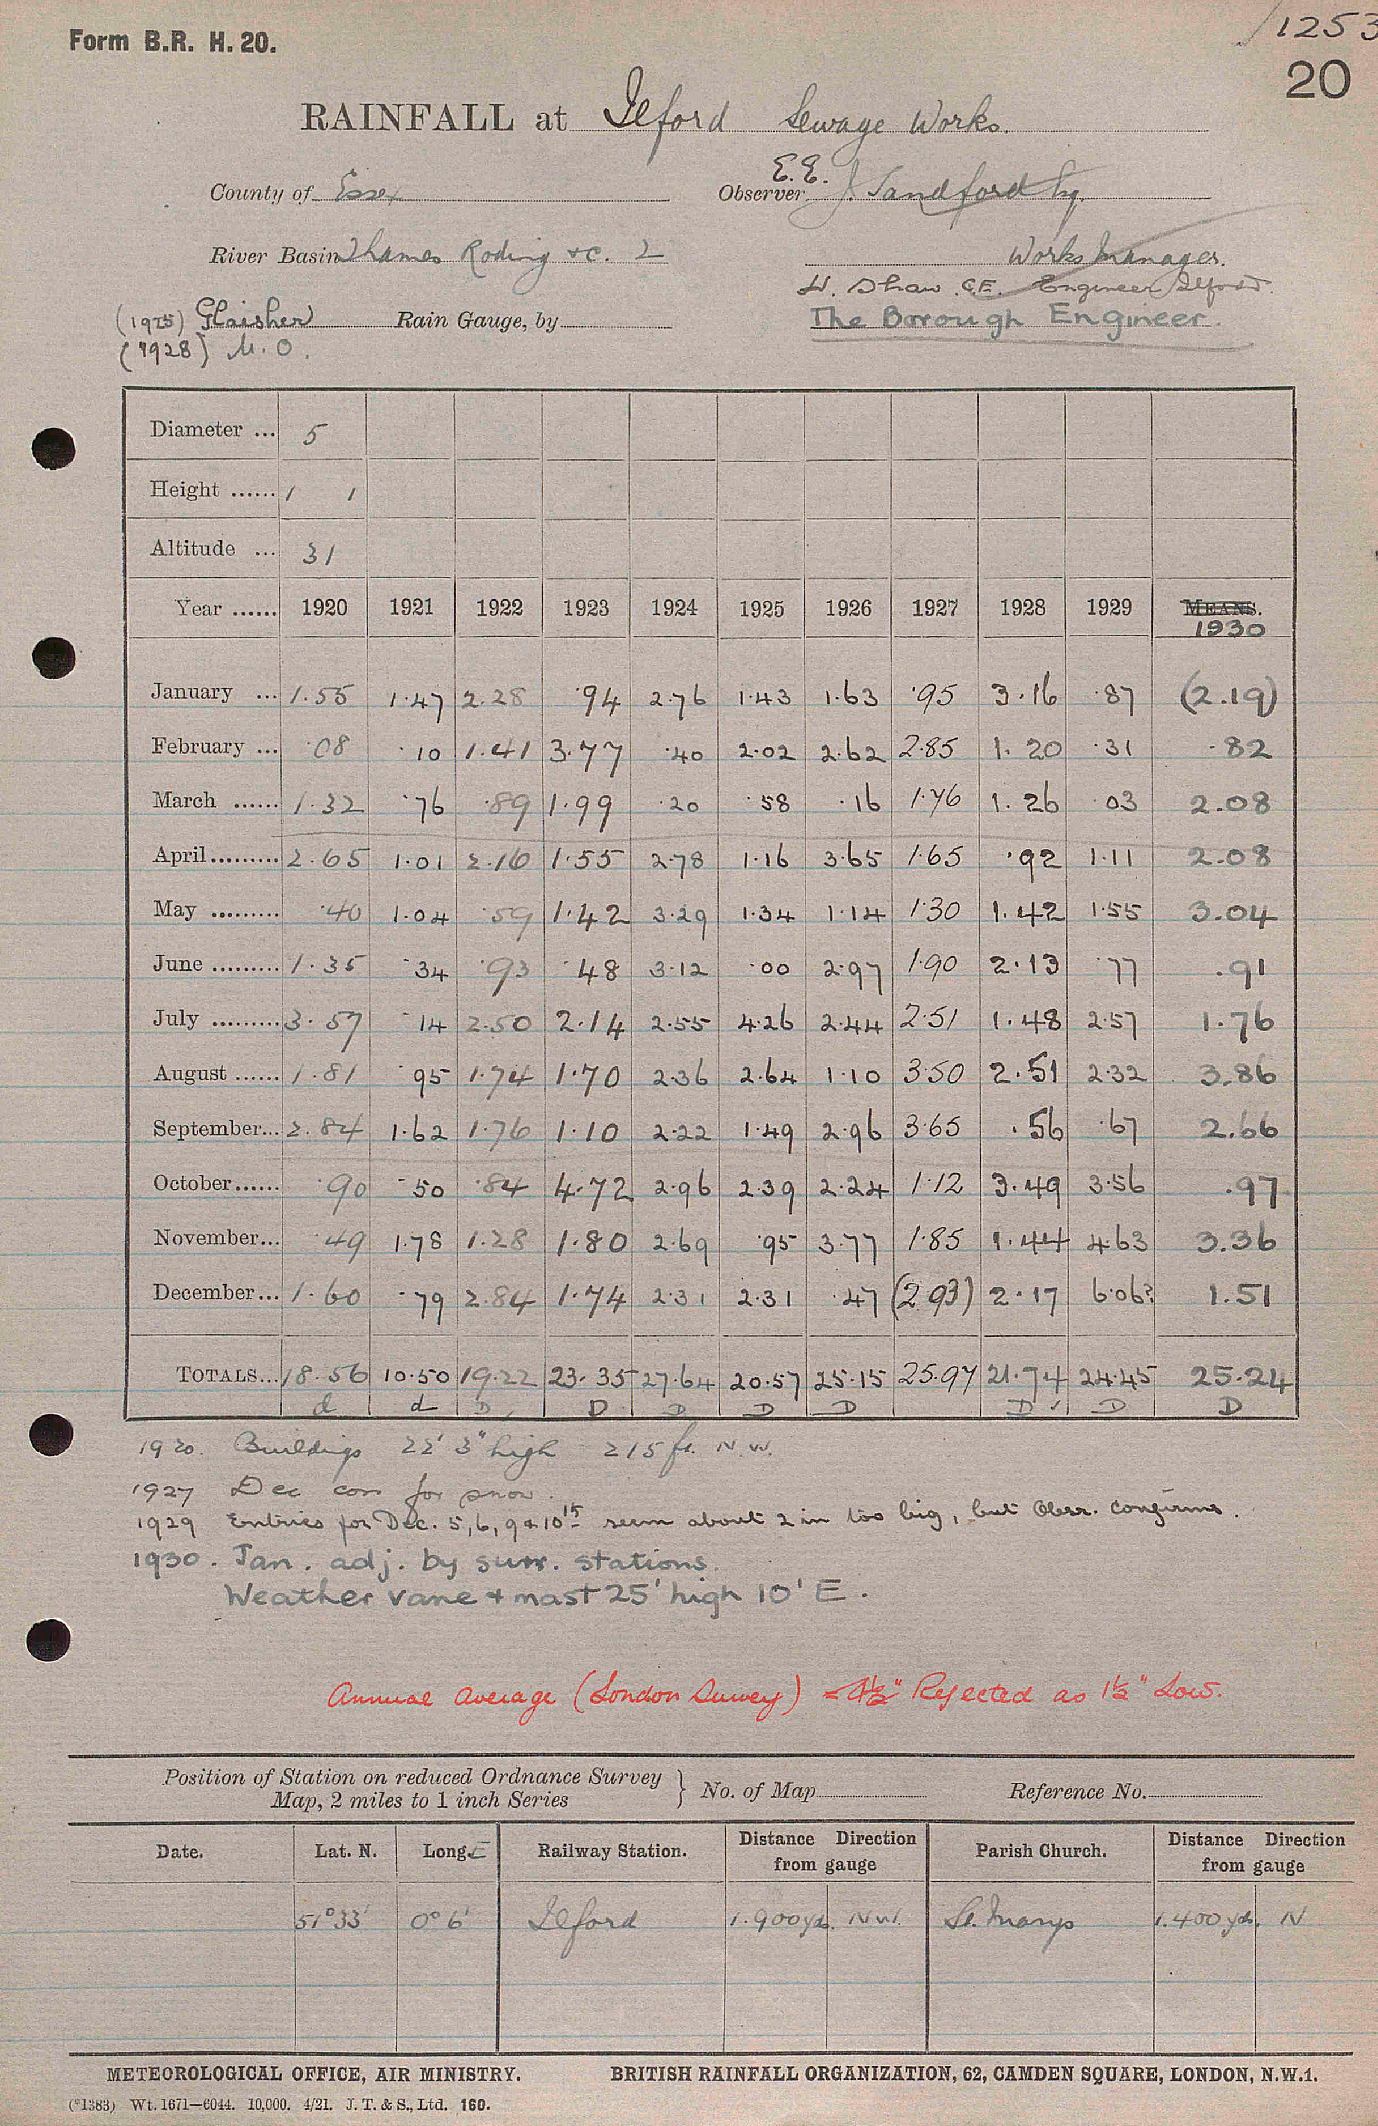 1253
Form B.R. H. 20.
20
RAINFALL at Ilford Sewage Works.
E.E.
County of Essex Observer J. Sandford Esq.
River Basin Thames Roding &c. 2 Works Manager.
H. Shaw C.E. Engineer Ilford.
(1925) Glaisher Rain Gauge, by The Borough Engineer.
(1928) M.O.
Diameter ... 5
Height ...... 1 1
Altitude ... 31
Year ...... 1920 1921 1922 1923 1924 1925 1926 1927 1928 1929 MEANS. 1930
January ... 1.55 1.47 2.28 .94 2.76 1.43 1.63 .95 3.16 .87 (2.19)
February ... .08 .10 1.41 3.77 .40 2.02 2.62 2.85 1.20 .31 .82
March ...... 1.32 .76 .89 1.99 .20 .58 .16 1.76 1.26 .03 2.08
April ......... 2.65 1.01 2.16 1.55 2.78 1.16 3.65 1.65 .92 1.11 2.08
May ......... .40 1.04 .59 1.42 3.29 1.34 1.14 1.30 1.42 1.55 3.04
June ......... 1.35 .34 .93 .48 3.12 .00 2.97 1.90 2.13 .77 .91
July ......... 3.57 .14 2.50 2.14 2.55 4.26 2.44 2.51 1.48 2.57 1.76
August ...... 1.81 .95 1.74 1.70 2.36 2.64 1.10 3.50 2.51 2.32 3.86
September... 2.84 1.62 1.76 1.10 2.22 1.49 2.96 3.65 .56 .67 2.66
October...... .90 .50 .84 4.72 2.96 2.39 2.24 1.12 3.49 3.56 .97
November... .49 1.78 1.28 1.80 2.69 .95 3.77 1.85 1.44 4.63 3.36
December... 1.60 .79 2.84 1.74 2.31 2.31 .47 (2.93) 2.17 6.06? 1.51
TOTALS... 18.56 10.50 19.22 23.35 27.64 20.57 25.15 25.97 21.74 24.45 25.24
d d D D D D D D D D
1920. Buildings 22' 3" high 215 ft. N.W.
1927 Dec corr for snow.
1929 Entries for Dec. 5, 6, 9 & 10th seem about 2 in too big, but Obsr. confirms.
1930. Jan. adj. by surr. stations.
Weather vane & mast 25' high 10' E.
Annual Average (London Survey) Rejected as 1½" Low.
Position of Station on reduced Ordnance Survey
Map, 2 miles to 1 inch Series } No. of Map Reference No.
Date. Lat. N. Long. E Railway Station. Distance Direction from gauge Parish Church. Distance Direction from gauge
51°33' 0°6' Ilford 1.900 yds. NW. St. Marys 1.400 yds. N
METEOROLOGICAL OFFICE, AIR MINISTRY. BRITISH RAINFALL ORGANIZATION, 62, CAMDEN SQUARE, LONDON, N.W.1.
(*1383) Wt. 1671—6044. 10,000. 4/21. J. T. & S., Ltd. 160.